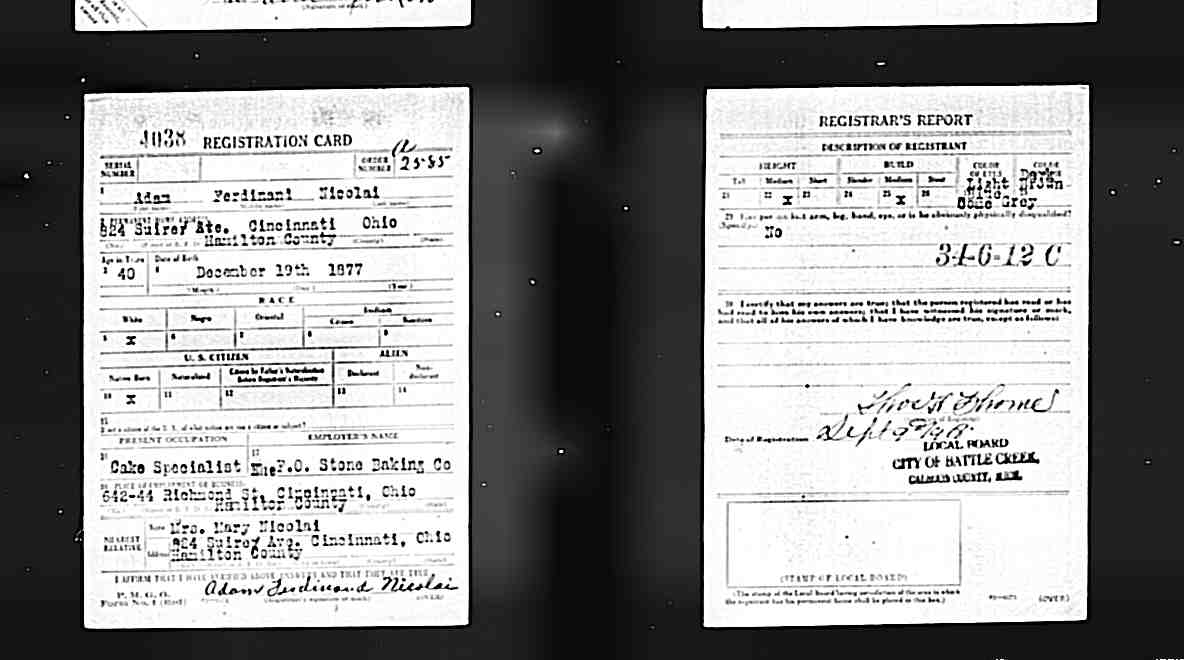 4038 REGISTRATION CARD
SERIAL NUMBER
ORDER NUMBER
a 2585
1 Adam Ferdinani Nicolai
2 PERMANENT HOME ADDRESS
824 Ave. Cincinnati Ohio
Hamilton County
Age in Years Date of Birth
3 40 4 December 19th 1877
(Month) (Day) (Year)
RACE
White Negro Oriental Indian
Citizen
5 X 6 7 8 9
U. S. CITIZEN ALIEN
Native Born Naturalized Citizen by Father's Naturalization Before Registrant's Majority Declarant Non-declarant
10 X 11 12 13 14
15
If not a citizen of the U. S., of what nation are you a citizen or subject?
PRESENT OCCUPATION EMPLOYER'S NAME
16 Cake Specialist 17 The F.O. Stone Baking Co
18 PLACE OF EMPLOYMENT OR BUSINESS
642-44 Richmond St. Cincinnati, Ohio
Hamilton County
NEAREST RELATIVE
Name Mrs. Mary Nicolai
Address 824 Ave. Cincinnati, Ohio
Hamilton County
I AFFIRM THAT I HAVE VERIFIED ABOVE ANSWERS AND THAT THEY ARE TRUE
P. M. G. O.
Form No. 1 (Red)
Adam Ferdinand Nicolai
(Registrant's signature or mark) (OVER)
REGISTRAR'S REPORT
DESCRIPTION OF REGISTRANT
HEIGHT BUILD COLOR OF EYES COLOR OF HAIR
Tall Medium Short Slender Medium Stout
21 22 X 23 24 25 X 26
Light Blue
Dark Brown
Some Grey
29 Has person lost arm, leg, hand, eye, or is he obviously physically disqualified?
(Specify.) No
34-6-12 C
30 I certify that my answers are true; that the person registered has read or has
had read to him his own answers; that I have witnessed his signature or mark,
and that all of his answers of which I have knowledge are true, except as follows:
Date of Registration Sept 9" 1918
LOCAL BOARD
CITY OF BATTLE CREEK,
CALHOUN COUNTY, MICH.
(STAMP OF LOCAL BOARD)
(The stamp of the Local Board having jurisdiction of the area in which
the registrant has his permanent home shall be placed in this box.)
(OVER)